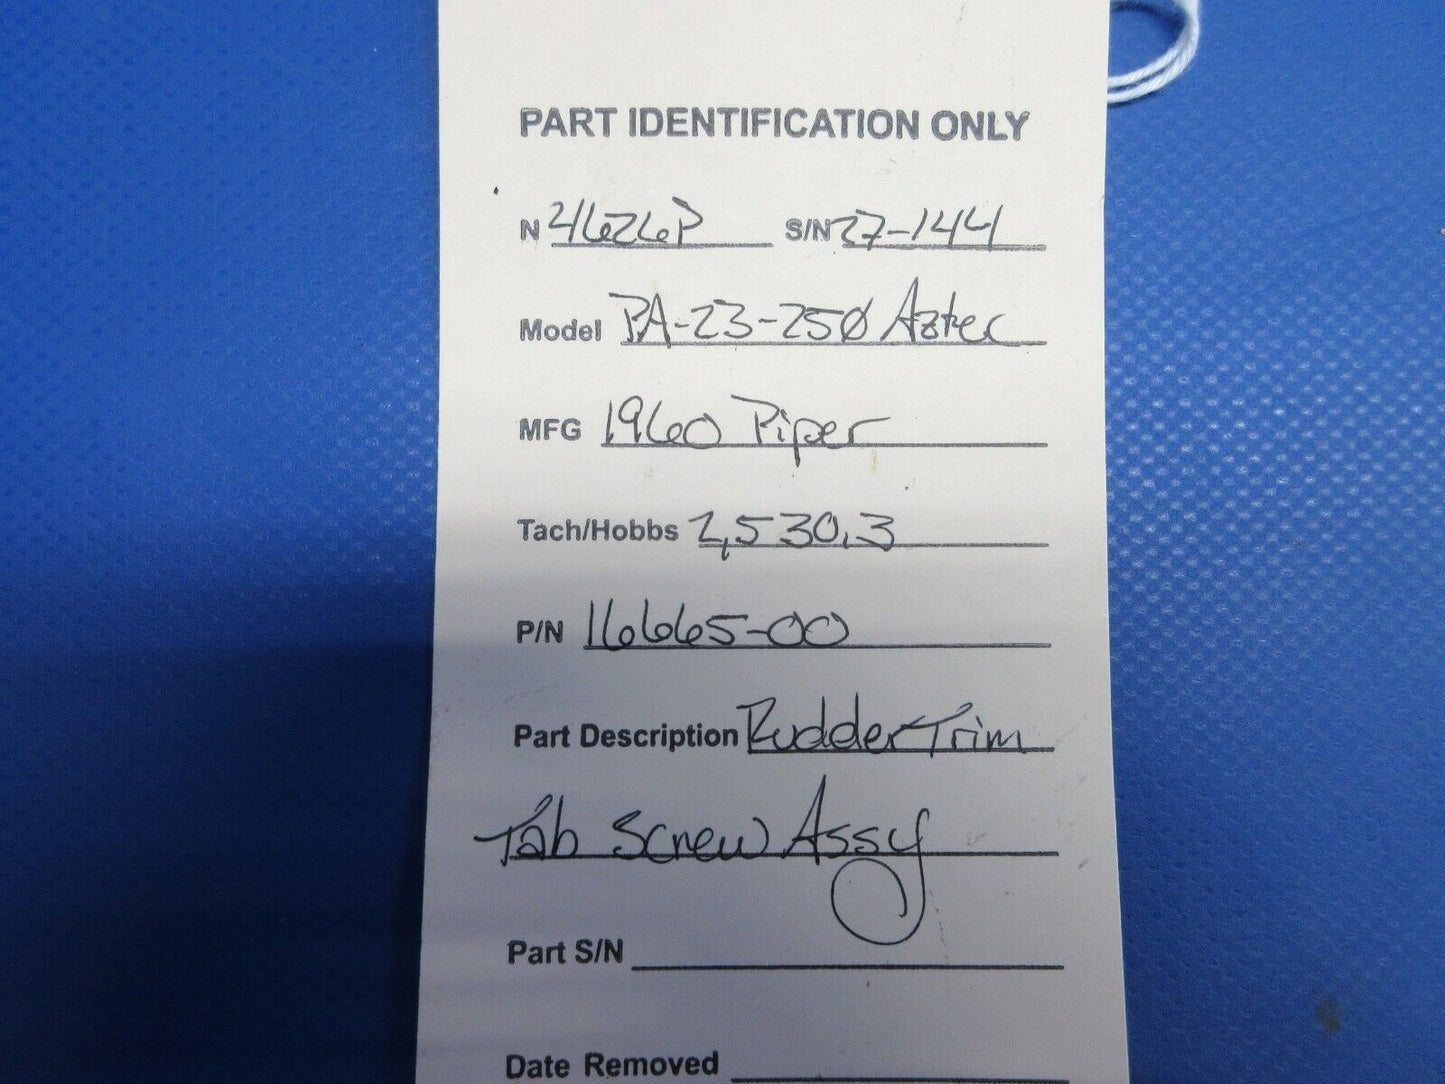 PART IDENTIFICATION ONLY
N 4626P S/N 27-144
Model PA-23-250 Aztec
MFG 1960 Piper
Tach/Hobbs 2,530.3
P/N 16665-00
Part Description Rudder Trim
Tab Screw Assy
Part S/N
Date Removed